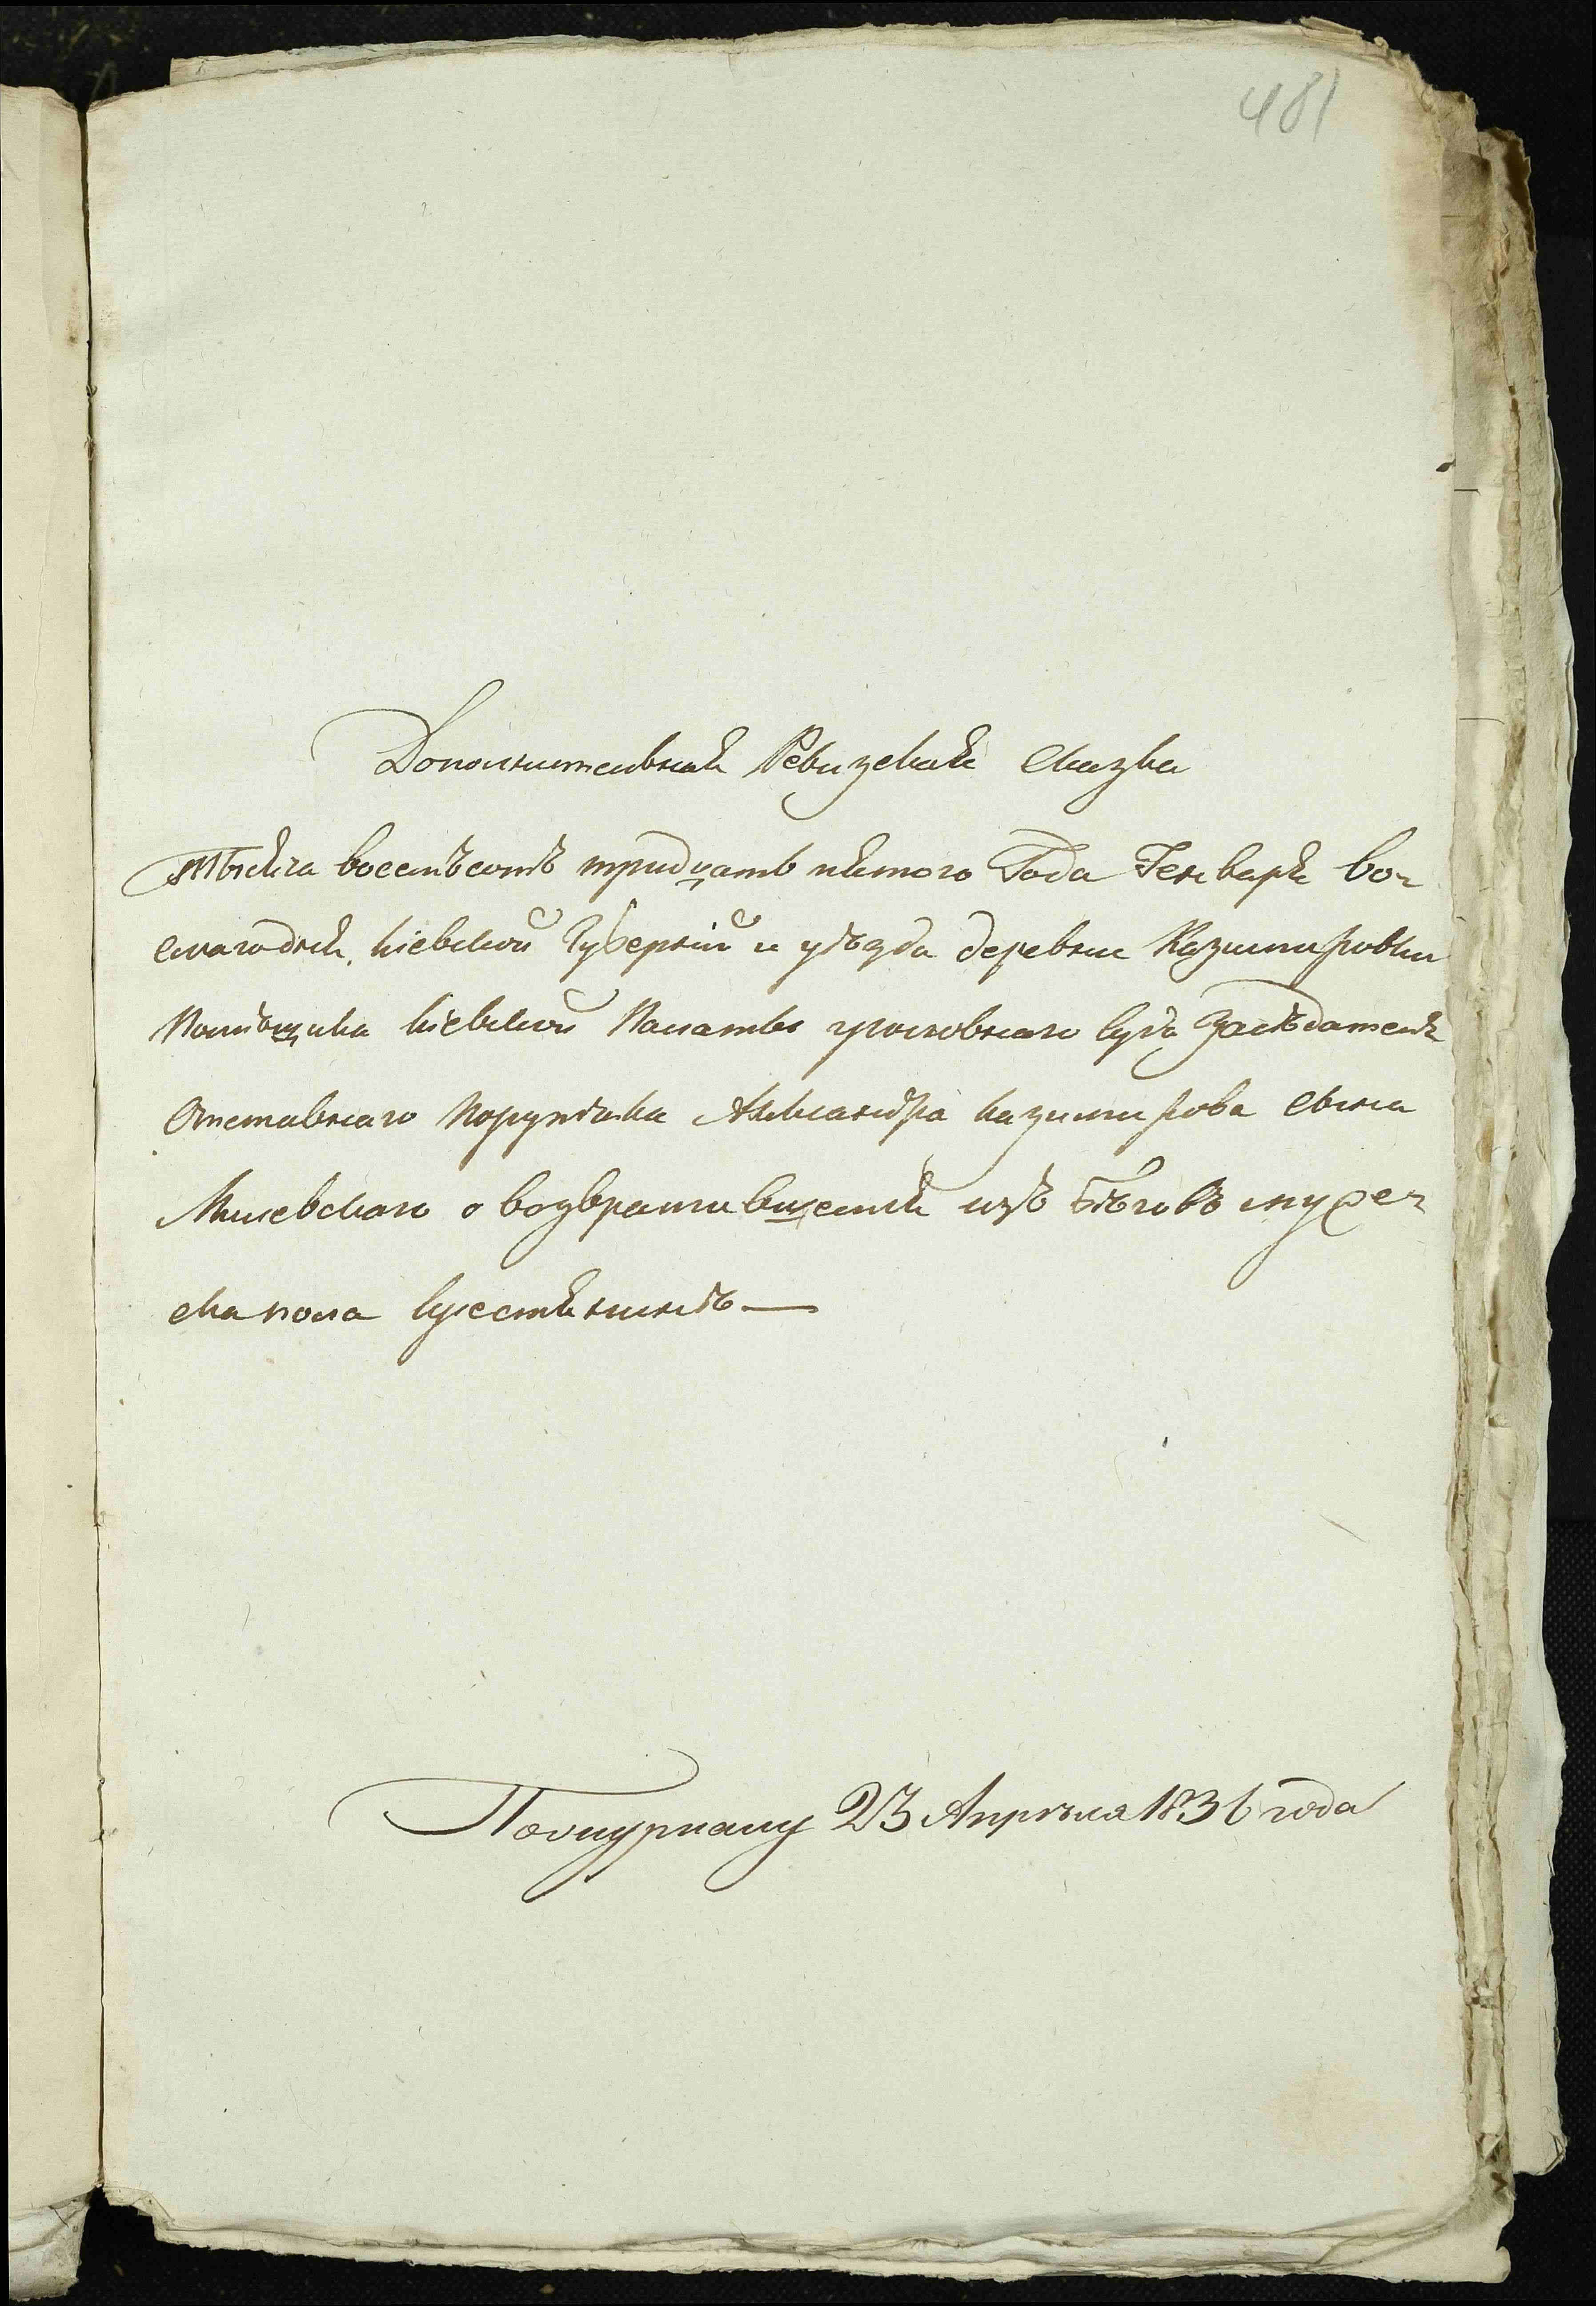 481
Дополнительная Ревизская Сказка
Тысяча восемьсотъ тридцать пятого Года Генваря во-
смагодня, Кіевской Губерніи и уѣзда деревни Казимировки
Помѣщика Кіевской Палаты уголовнаго Суда Засѣдателя
Отставнаго Порутчика Александра Казимирова Сына
Милевскаго о возвратившемся изъ бѣговъ мужес-
ка пола крестьянинѣ —
23 Апрѣля 1836 года